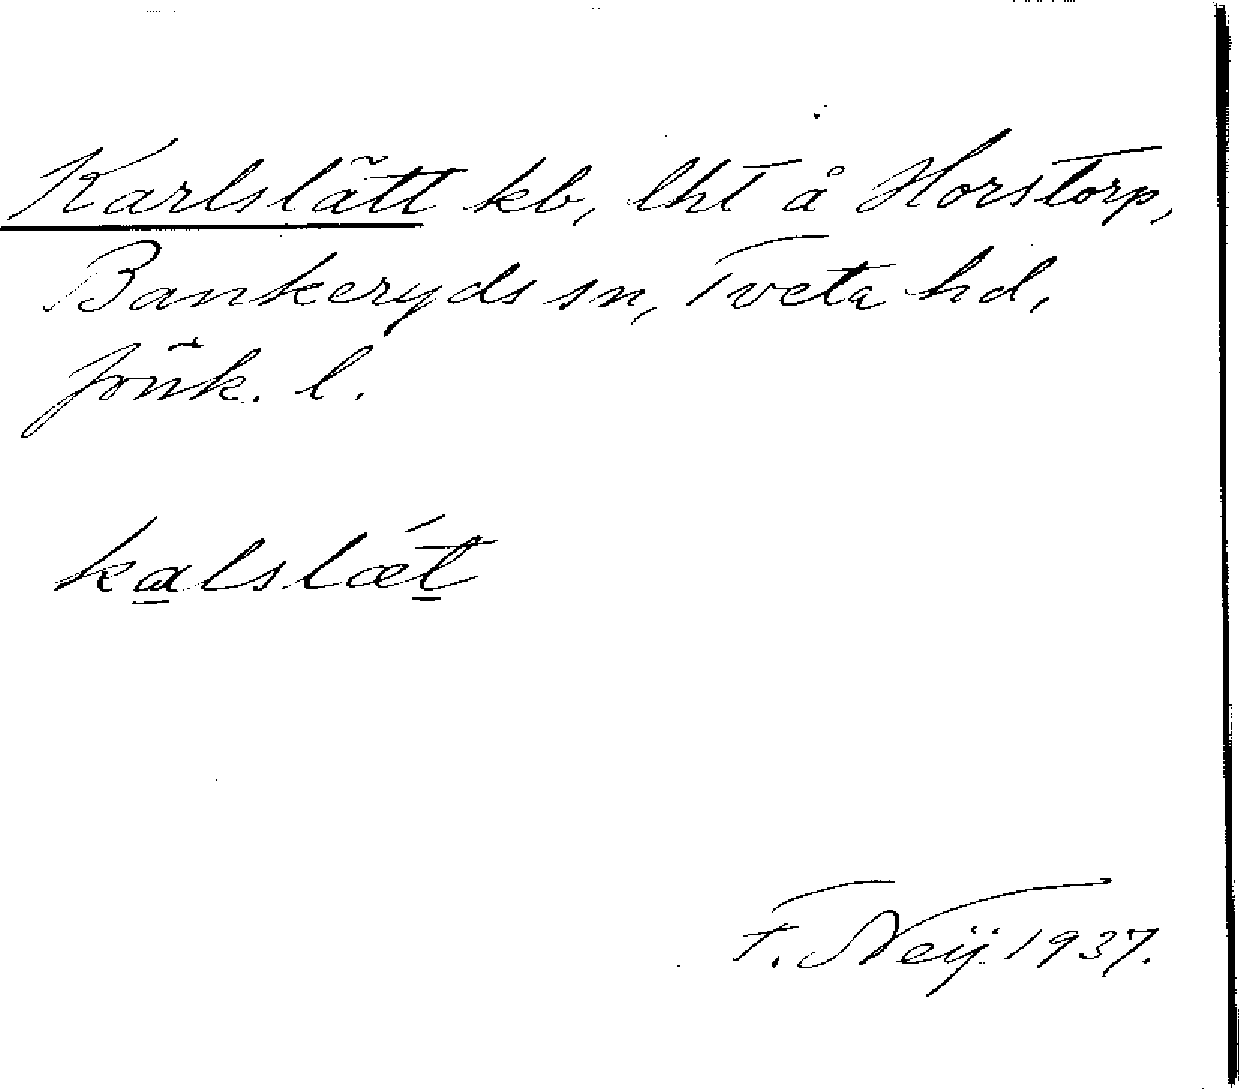 Karlslätt kb, lht å Horstorp,
Bankeryds sn, Tveta hd,
Jönk. l.
kalslǽt
F. Neij. 1937.